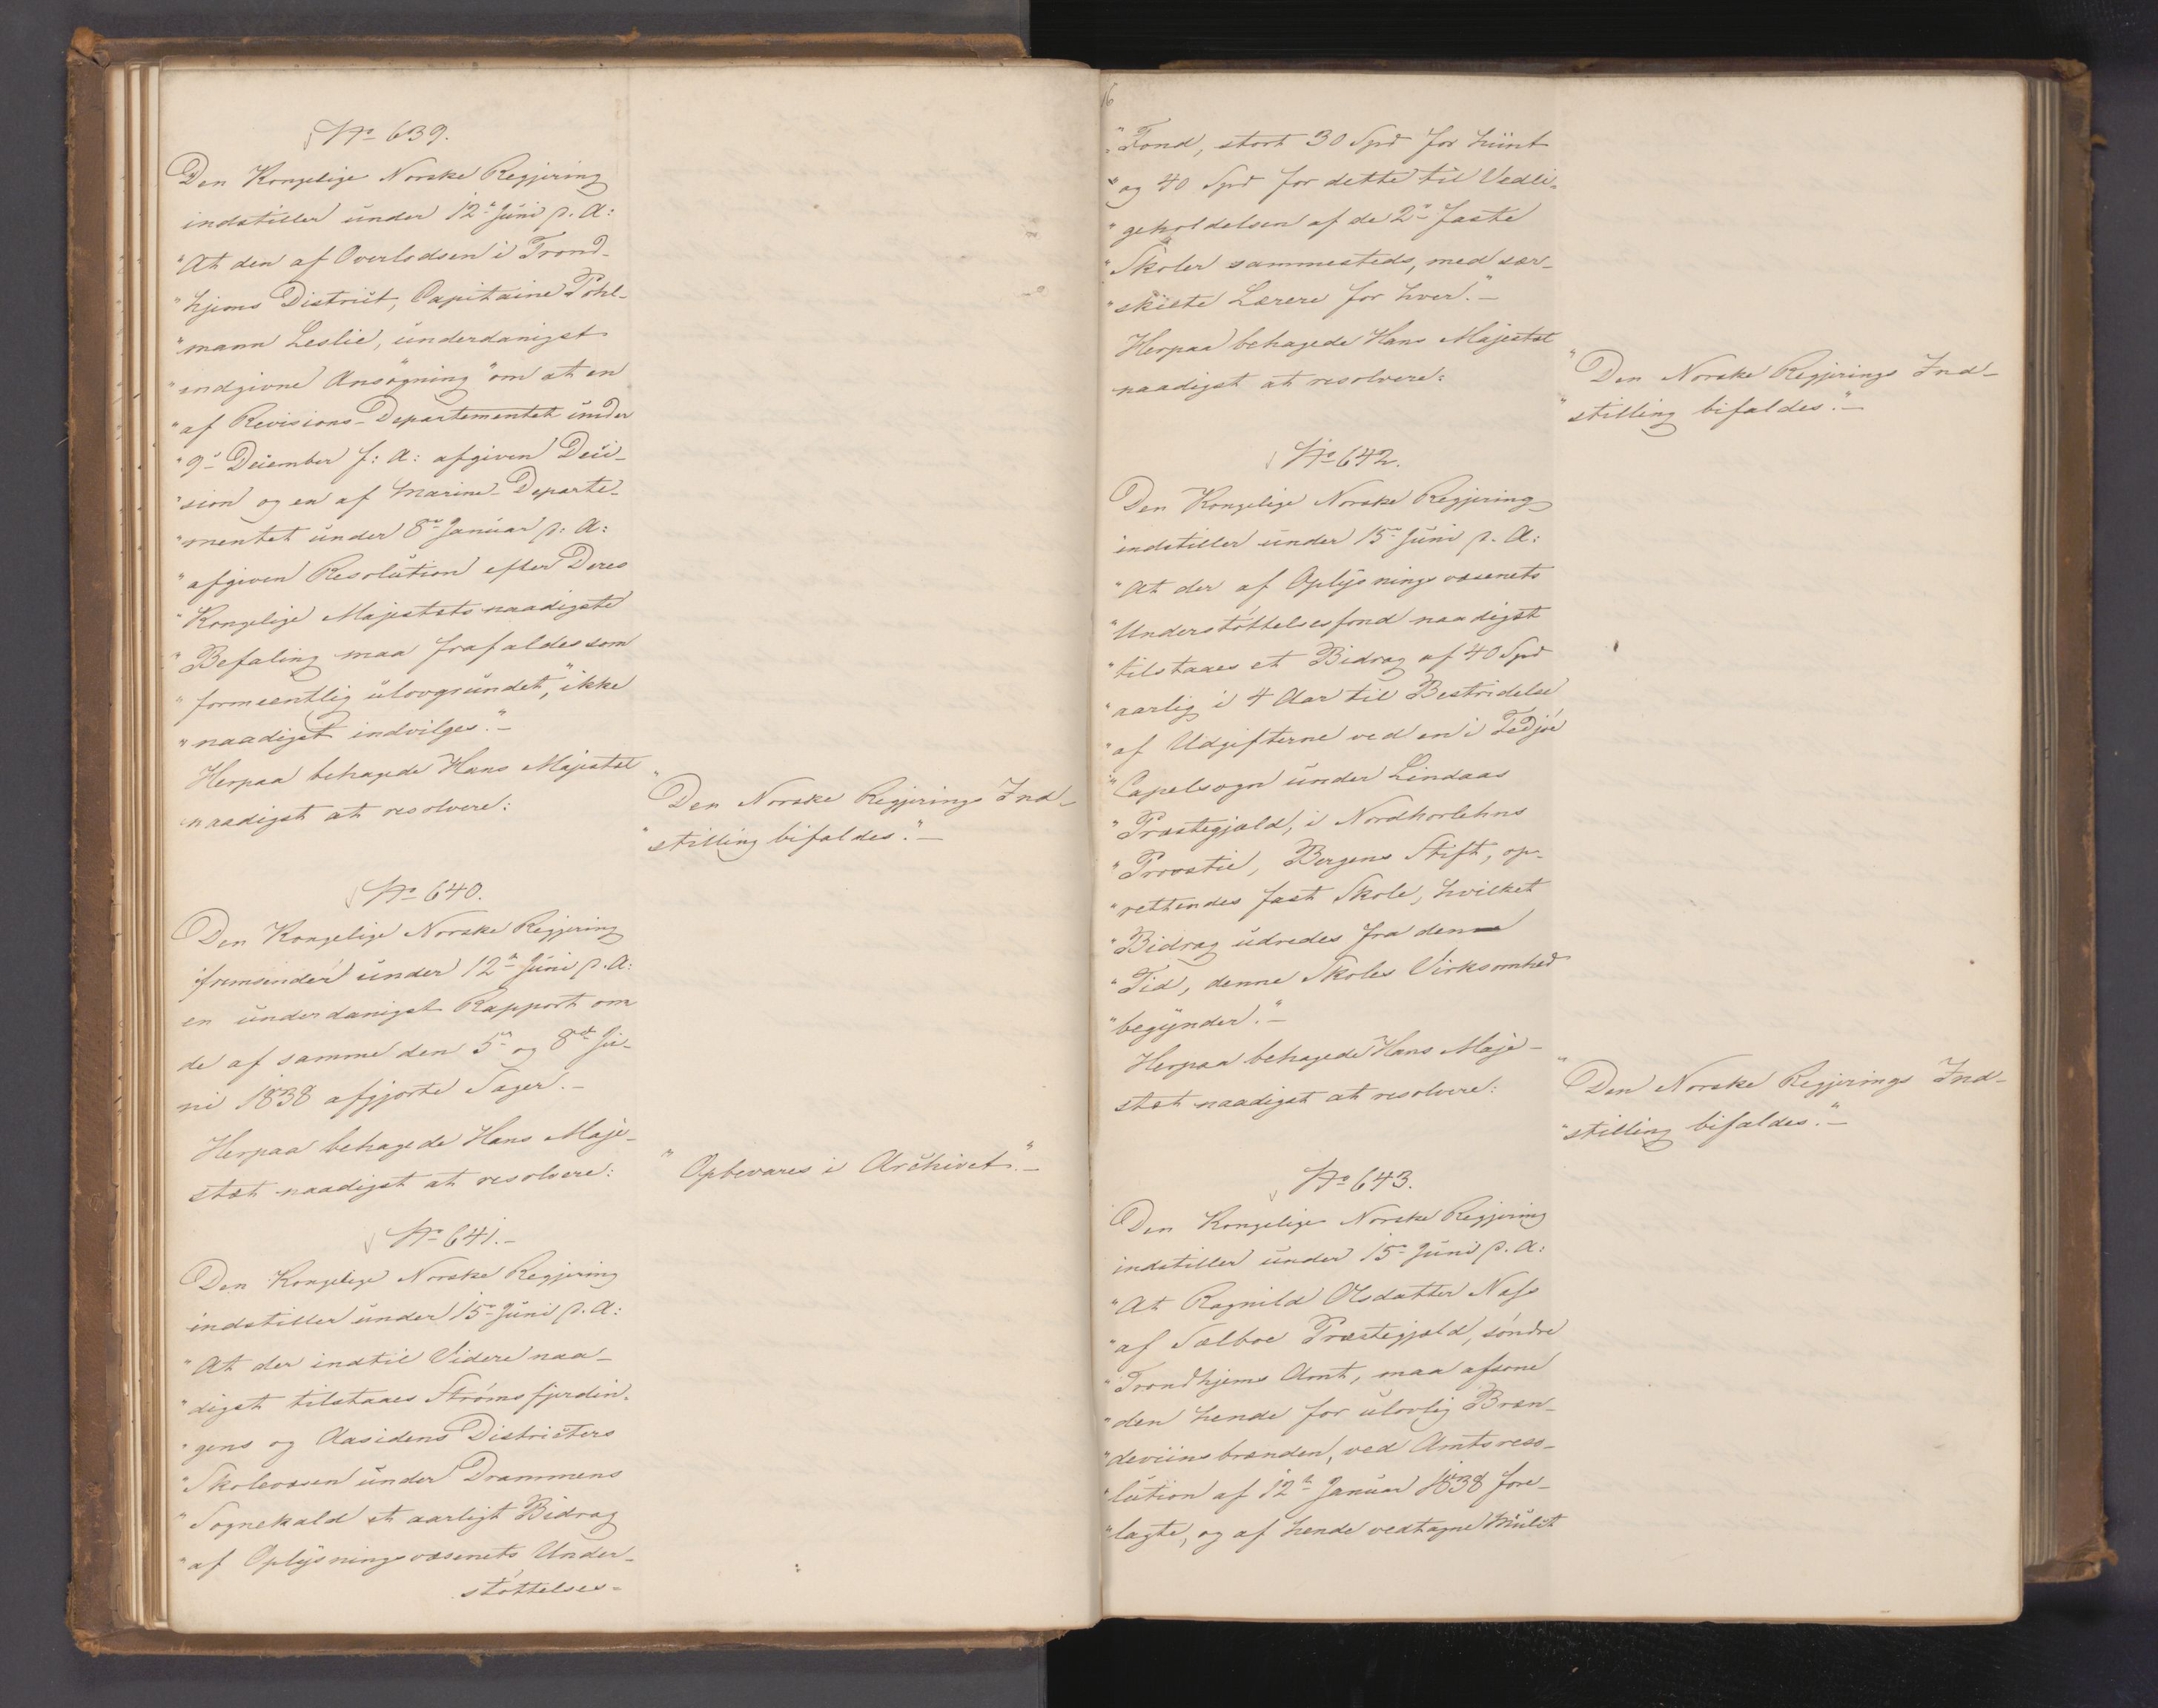 No 639.
Den Kongelige Norske Regjering
indstiller under 12te Juni p. A:
"At den af Overlodsen i Trond-
"hjems District, Capitaine Pohl-
"mann Leslie, underdanigst
"indgivne Ansøgning "om at en
"af Revisions-Departementet under
"9de December f: A: afgiven Deci-
"sion og en af Marine-Departe-
"mentet under 8de Januar p: A:
"afgiven Resolution efter Deres
"Kongelige Majestæts naadigste
"Befaling maa frafaldes som
"formeentlig ulovgrundet," ikke
"naadigst indvilges."-
Herpaa behagede Hans Majestæt
naadigst at resolvere:
"Den Norske Regjerings Ind-
"stilling bifaldes."-
No 640.
Den Kongelige Norske Regjering
fremsender under 12te Juni p. A:
en underdanigst Rapport om
de af samme den 5te og 8de Ju-
ni 1838 afgjorte Sager.-
Herpaa behagede Hans Maje-
stæt naadigst at resolvere:
"Opbevares i Archivet."-
No 641.-
Den Kongelige Norske Regjering
indstiller under 15de Juni p. A:
"At der indtil Videre naa-
"digst tilstaaes Strømsfjerdin-
"gens og Aasidens Districters
"Skolevæsen under Drammens
"Sognekald et aarligt Bidrag
"af Oplysningsvæsenets Under-
støttelses-
16
"Fond, stort 30 Spd for hiint
"og 40 Spd for dette til Vedli-
"geholdelsen af de 2de faste
"Skoler sammesteds, med sær-
"skilte Lærere for hver."-
Herpaa behagede Hans Majestæt
naadigst at resolvere:
"Den Norske Regjerings Ind-
"stilling bifaldes."-
No 642.
Den Kongelige Norske Regjering
indstiller under 15de Juni p. A:
"At der af Oplysningsvæsenets
"Understøttelsesfond naadigst
"tilstaaes et Bidrag af 40 Spd
"aarlig i 4 Aar til Bestridelse
"af Udgifterne ved en i Fedjøe
"Capelsogn under Lindaas
"Præstegjæld, i Nordhorlehns
"Provstie, Bergens Stift, op-
"rettendes fast Skole, hvilket
"Bidrag udredes fra den
"Tid, denne Skoles Virksomhed
"begynder."-
Herpaa behagede Hans Maje-
stæt naadigst at resolvere:
"Den Norske Regjerings Ind-
"stilling bifaldes."-
No 643.
Den Kongelige Norske Regjering
indstiller under 15de Juni p. A:
"At Ragnild Olsdatter Næss
"af Sælboe Præstegjæld, søndre
"Trondhjems Amt, maa afsone
"den hende for ulovlig Bræn-
"deviinsbrænden, ved Amtsreso-
"lution af 12te Januar 1838 fore-
"lagte, og af hende vedtagne Mulct